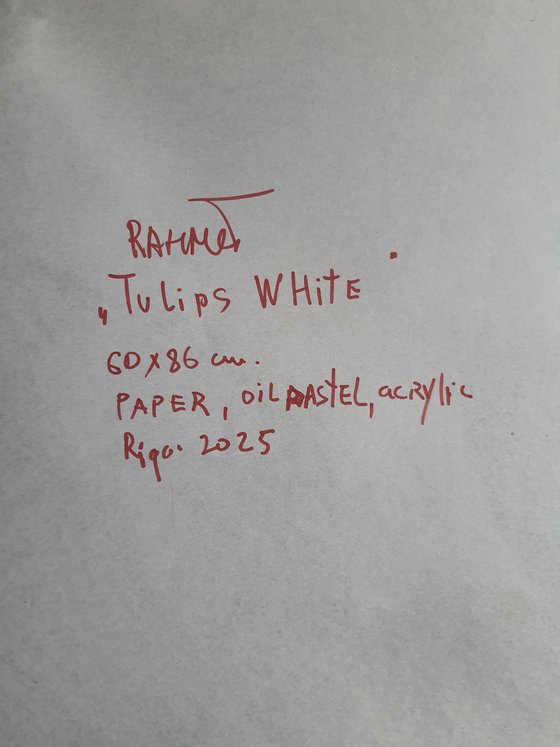 RAHMET
„Tulips WHitE"
60x86 cm.
PAPER, OiL PASTEL, acRylic
Riga. 2025